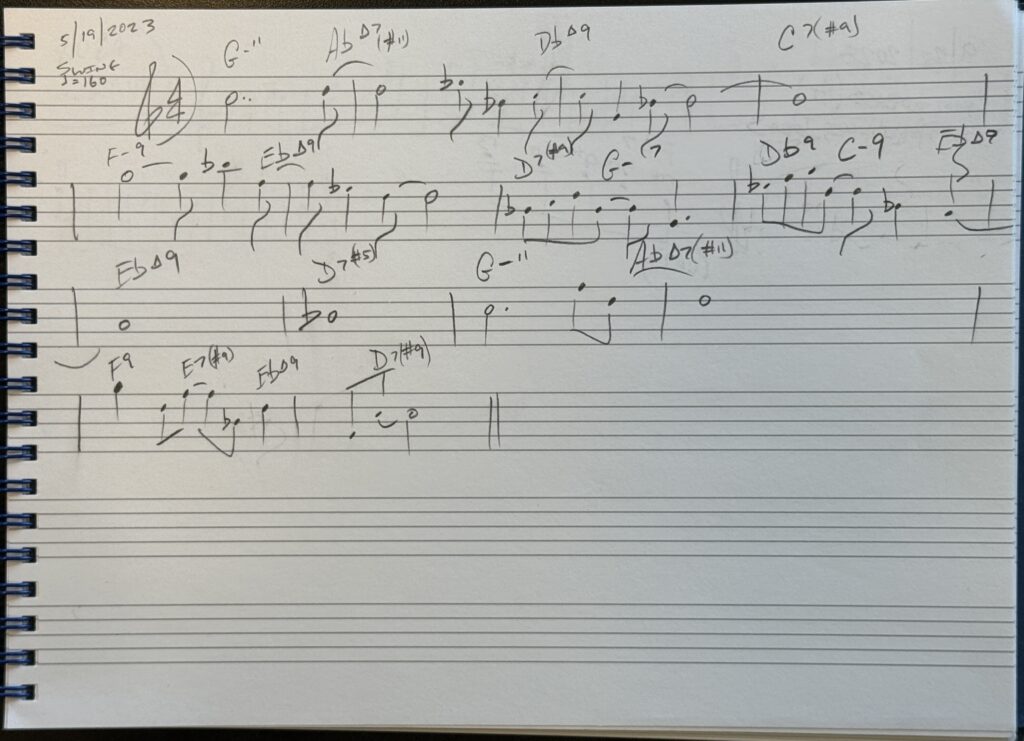 5/19/2023
G-11 Ab△7(#11) Db△9 C7(#9)
SWING
♩=160
4/4
F-9 Eb△9 D7(#9) G-7 Db9 C-9 Eb△9
Eb△9 D7(#5) G-11 Ab△7(#11)
F9 E7(#9) Eb△9 D7(#9)